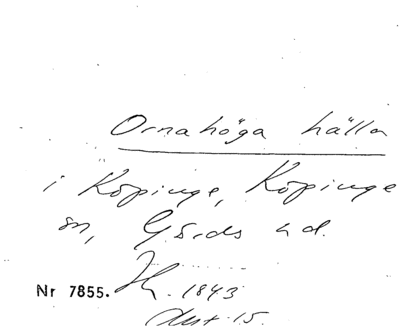 Ornahöga hälla
i Köpinge, Köpinge
sn, Gärds hd.
Nr 7855. 1843
15.